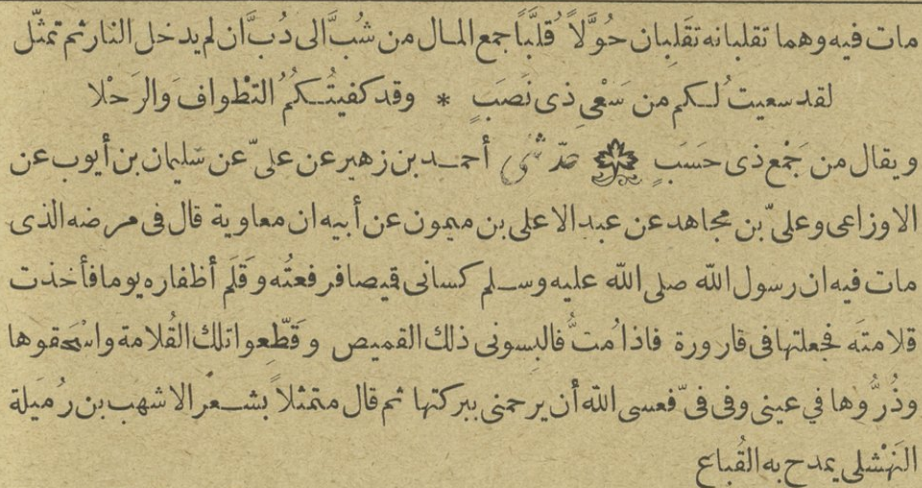 مات فيه وهما تقلبانه تقَلِّبان حُوَّلاً قُلَّبًا جمع المال من شُبَّ الى دُبَّ ان لم يدخل النار ثم تمثّل
لقد سعيتُ لـكم من سَعْىِ ذى نَصَبٍ * وقد كفيتُـكُمُ التَطْوافَ وَالرَحْلا
ويقال من جَمْعِ ذى حَسَبٍ حدّثنى أحمـد بن زهير عن علىّ عن سليمان بن أيوب عن
الاوزاعى وعلىّ بن مجاهد عن عبد الاعلى بن ميمون عن أبيه ان معاوية قال فى مرضه الذى
مات فيه ان رسول الله صلى الله عليه وسـلم كسانى قميصا فرفعتُه وقَلَّم أظفاره يوما فأخذت
قلامتَه فجعلتها فى قارورة فاذا مُتُّ فالبِسونى ذلك القميص وقَطِّعوا تلك القُلامة واسْحَقوها
وذُرُّوها في عينى وفى فىّ فعسى الله أن يرحمنى ببركتها ثم قال متمثلاً بشـعر الاشهب بن رُمَيلة
النَهْشلى يمدح به القُباع